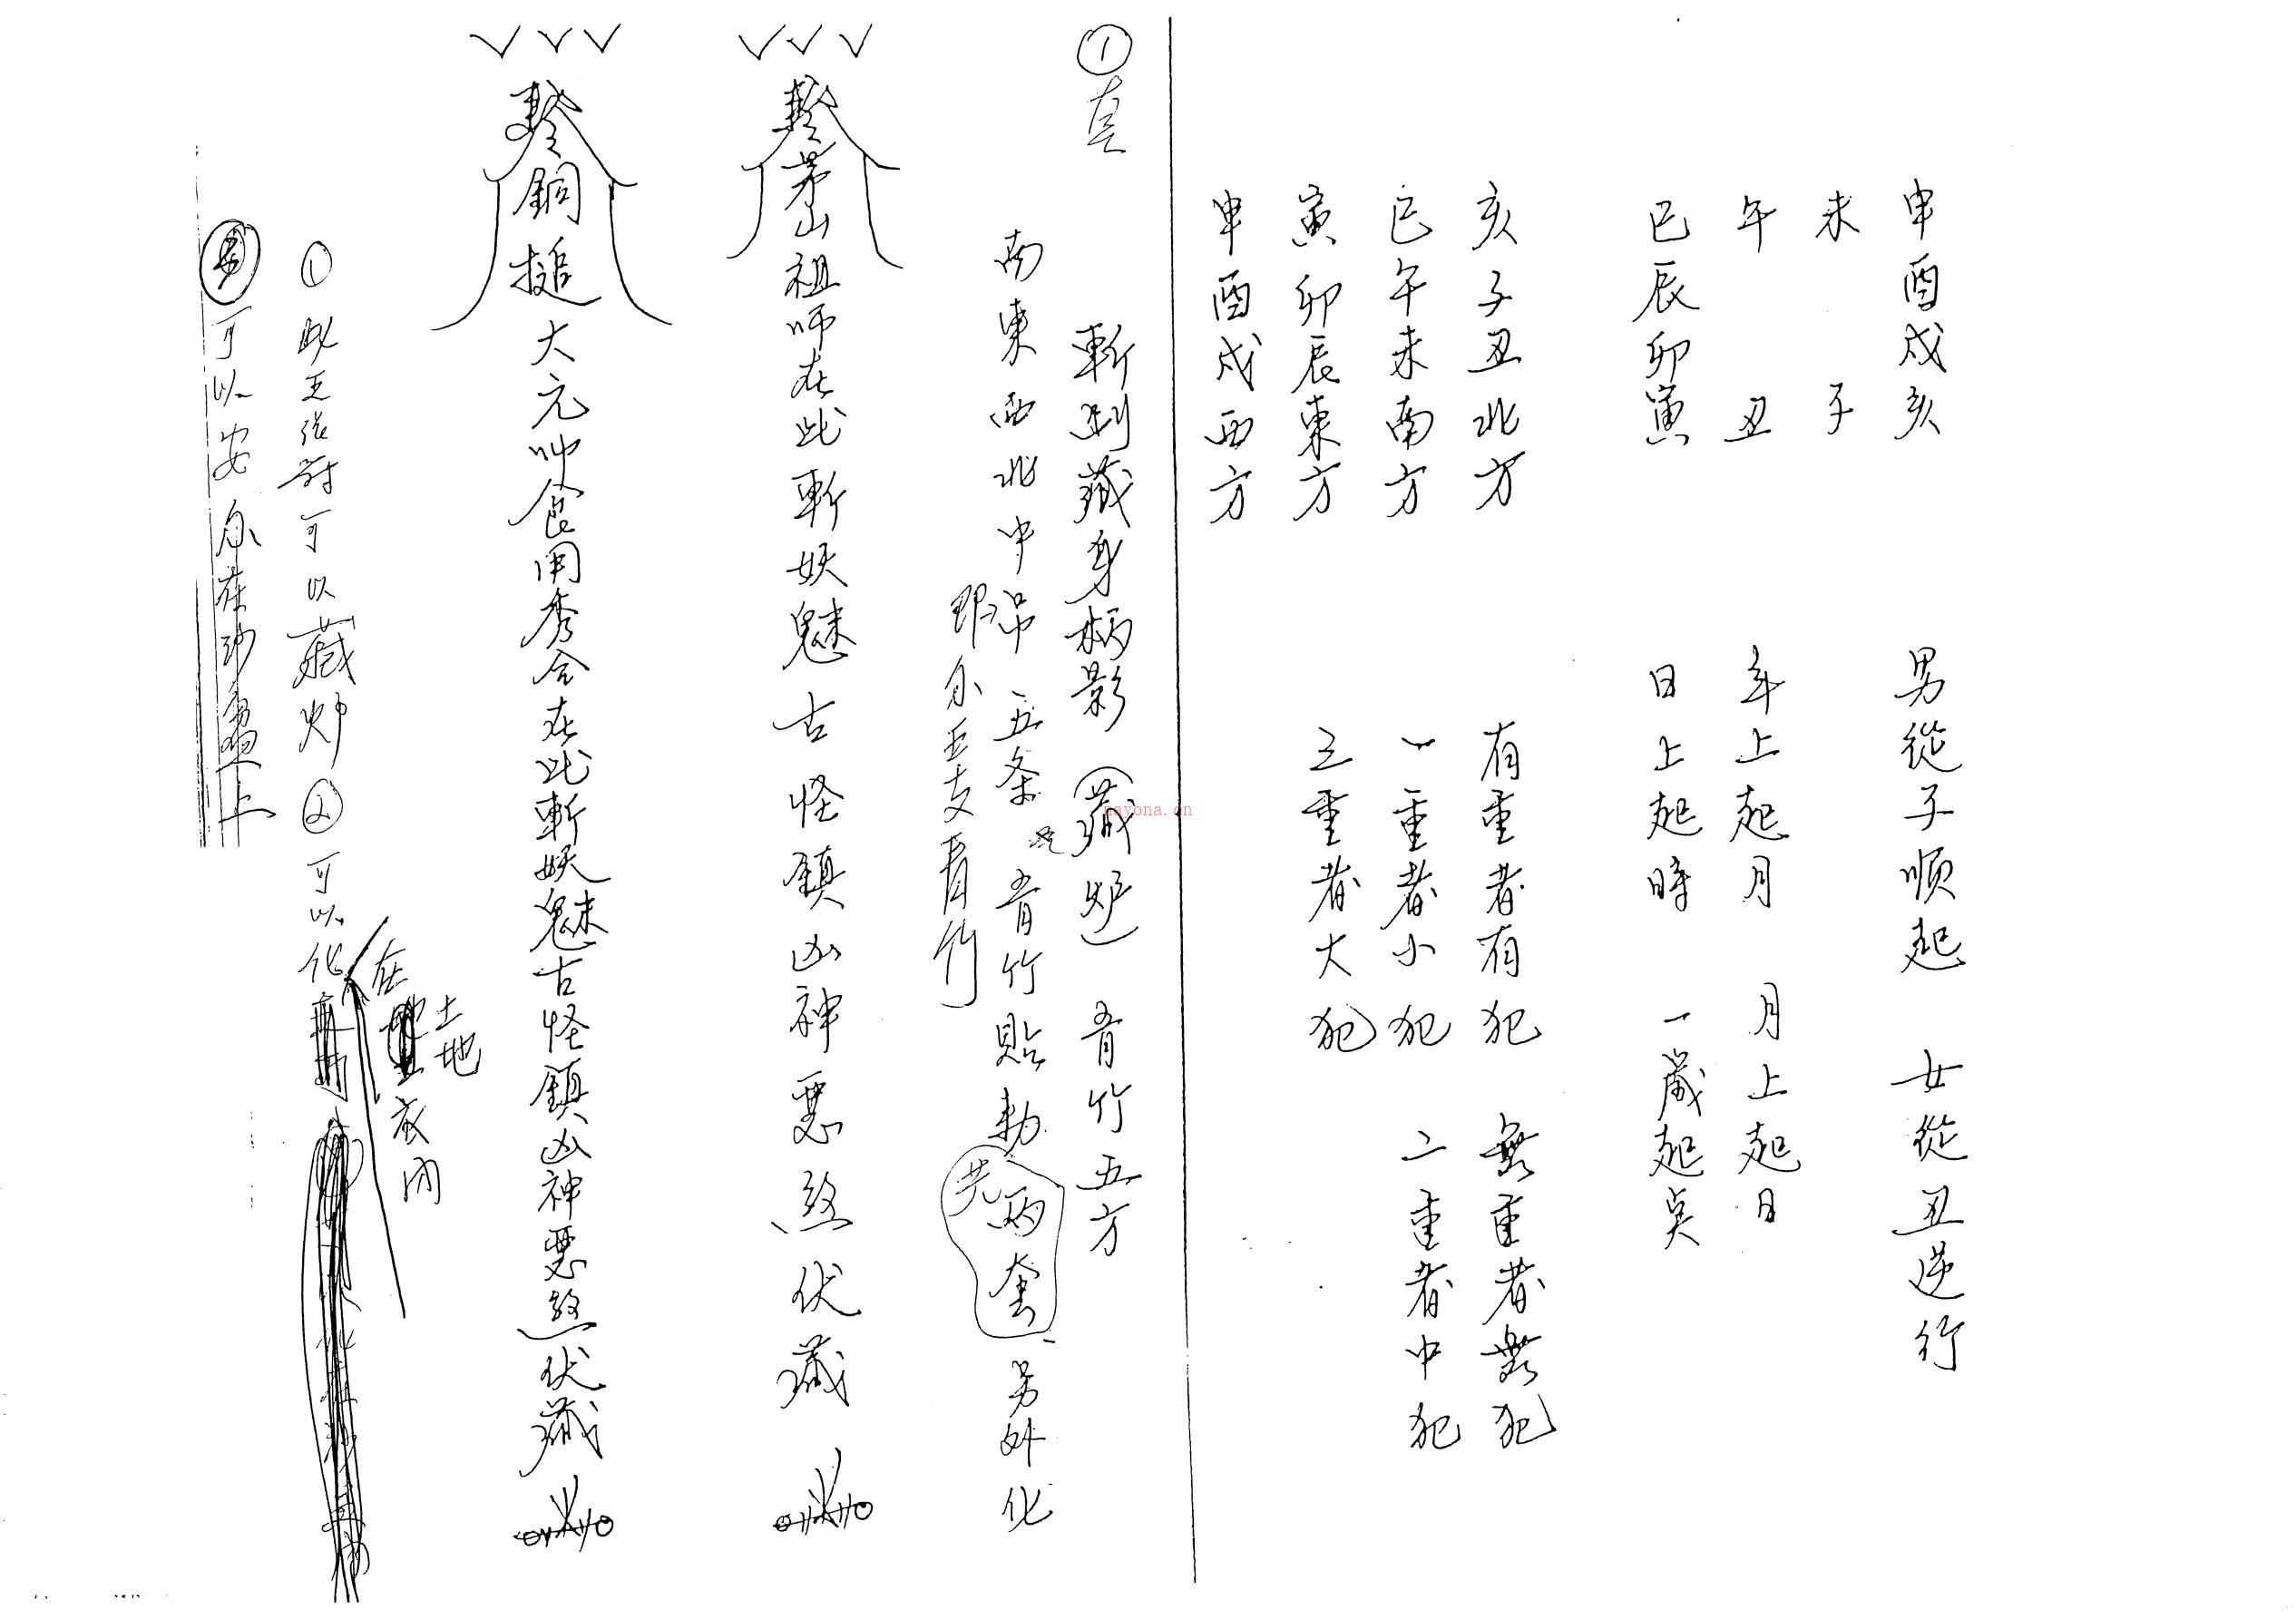 申酉戍亥
未　子
午　丑
巳辰卯寅
男從子順起　女從丑逆行
年上起月　月上起日
日上起時　一歲起吳
亥子丑北方
巳午未南方
寅卯辰東方
申酉戍西方
有重者有犯　無重者無犯
一重者小犯　二重者中犯
三重者大犯
① 真
斬剎藏身柄影（藏炉）青竹五方
南東西北中 吊五条 青竹貼勅 共两套 另外化
即 五支青竹
茅山祖师在此斬妖魅古怪鎮凶神惡煞伏藏
銅搥大元帅食用秀令在此斬妖魅古怪鎮凶神惡煞伏藏
① 此五张符可以藏炉 ② 可以化
在土地衣内
可以安 在 上
nayona.cn